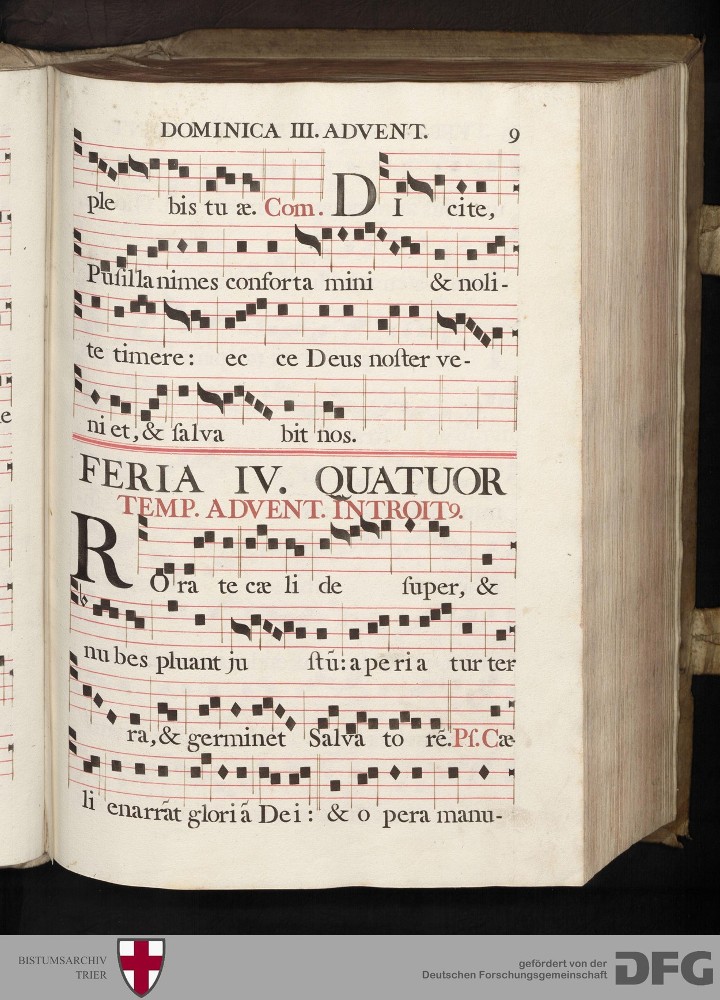 DOMINICA III. ADVENT. 9
ple bis tu æ. Com. DI cite,
Puſillanimes conforta mini & noli-
te timere: ec ce Deus noſter ve-
ni et, & ſalva bit nos.
FERIA IV. QUATUOR
TEMP. ADVENT. INTROIT9.
RO ra te cæ li de ſuper, &
nu bes pluant ju ſtũ: a pe ri a tur ter
ra, & germinet Salva to rẽ. Pſ. Cæ-
li enarrãt gloriã Dei: & o pera manu-
BISTUMSARCHIV
TRIER
gefördert von der
Deutschen Forschungsgemeinschaft
DFG